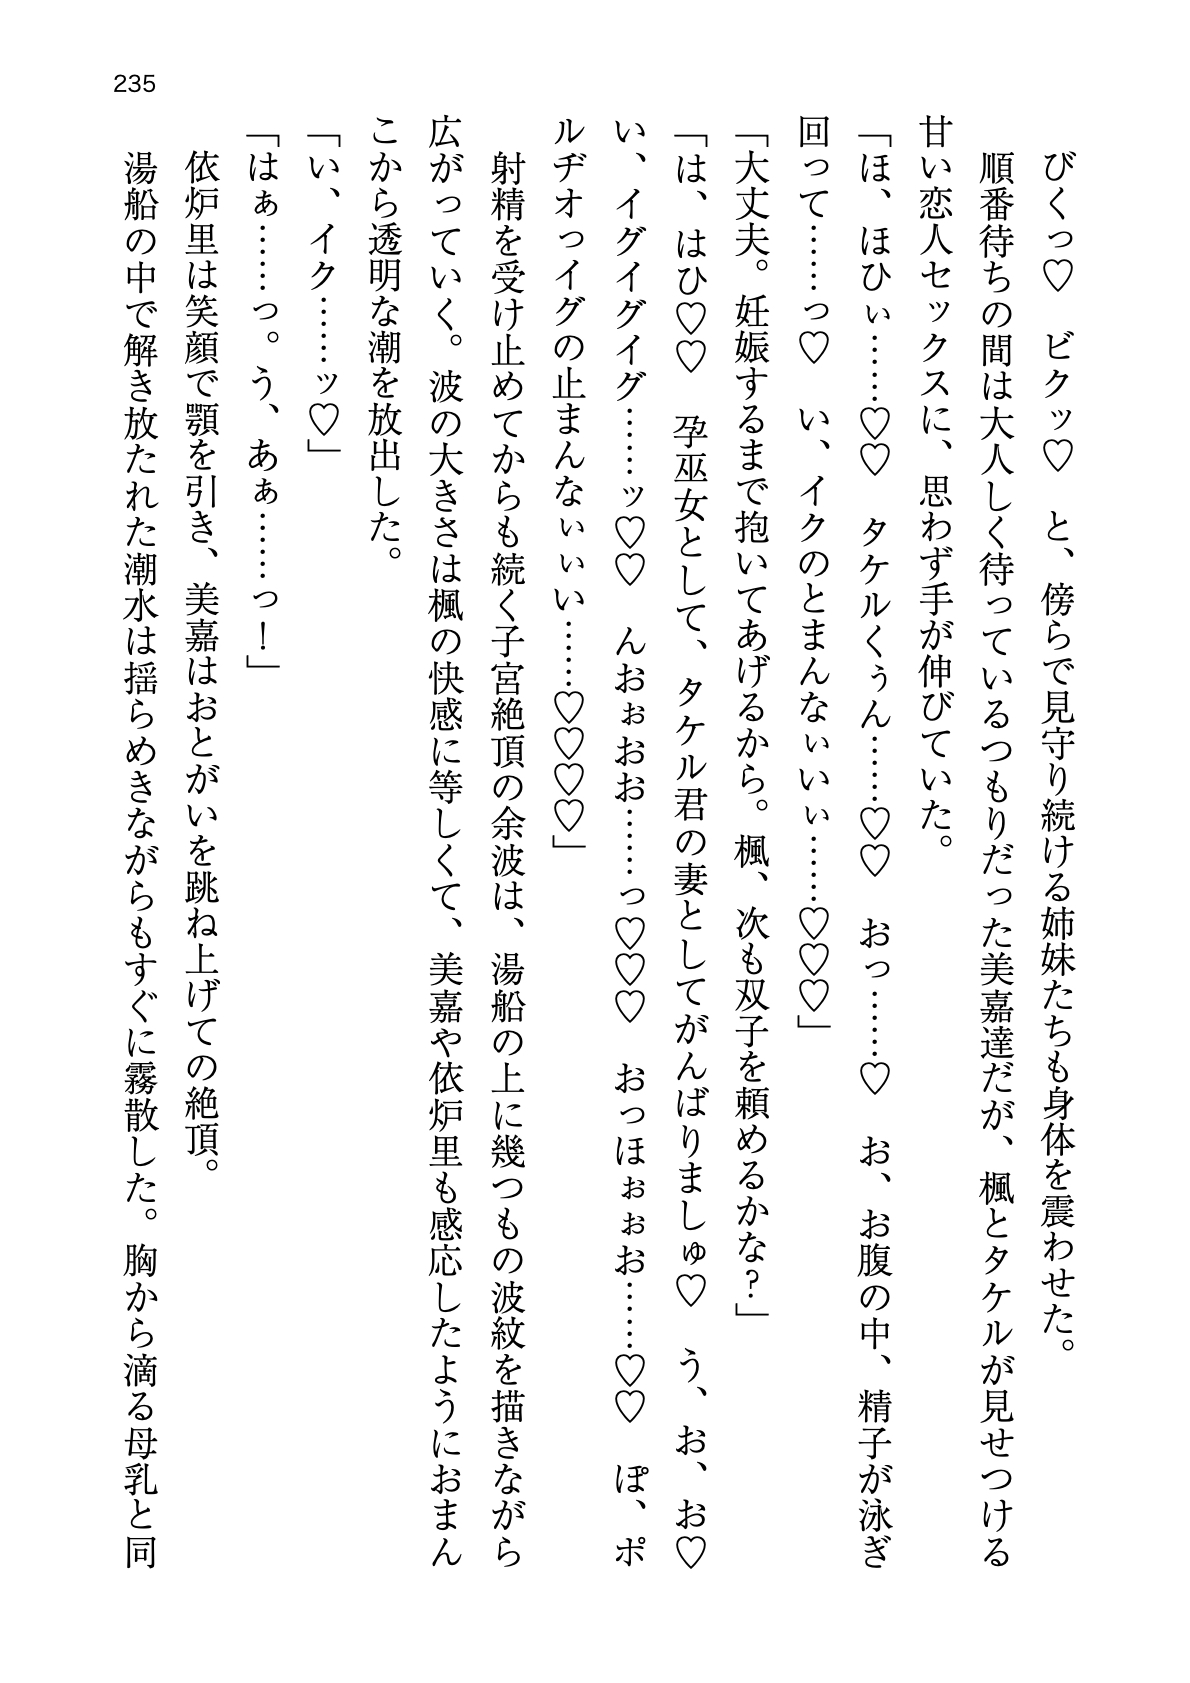 235
びくっ♡　ビクッ♡　と、傍らで見守り続ける姉妹たちも身体を震わせた。
順番待ちの間は大人しく待っているつもりだった美嘉達だが、楓とタケルが見せつける
甘い恋人セックスに、思わず手が伸びていた。
「ほ、ほひぃ……♡♡　タケルくぅん……♡♡　おっ……♡　お、お腹の中、精子が泳ぎ
回って……っ♡　い、イクのとまんなぃいぃ……♡♡♡」
「大丈夫。妊娠するまで抱いてあげるから。楓、次も双子を頼めるかな？」
「は、はひ♡♡　孕巫女として、タケル君の妻としてがんばりましゅ♡　う、お、お♡
い、イグイグイグ……ッ♡♡　んおぉおお……っ♡♡♡　おっほぉぉお……♡♡　ぽ、ポ
ルヂオっイグの止まんなぃぃい……♡♡♡♡」
射精を受け止めてからも続く子宮絶頂の余波は、湯船の上に幾つもの波紋を描きながら
広がっていく。波の大きさは楓の快感に等しくて、美嘉や依炉里も感応したようにおまん
こから透明な潮を放出した。
「い、イク……ッ♡」
「はぁ……っ。う、あぁ……っ！」
依炉里は笑顔で顎を引き、美嘉はおとがいを跳ね上げての絶頂。
湯船の中で解き放たれた潮水は揺らめきながらもすぐに霧散した。胸から滴る母乳と同